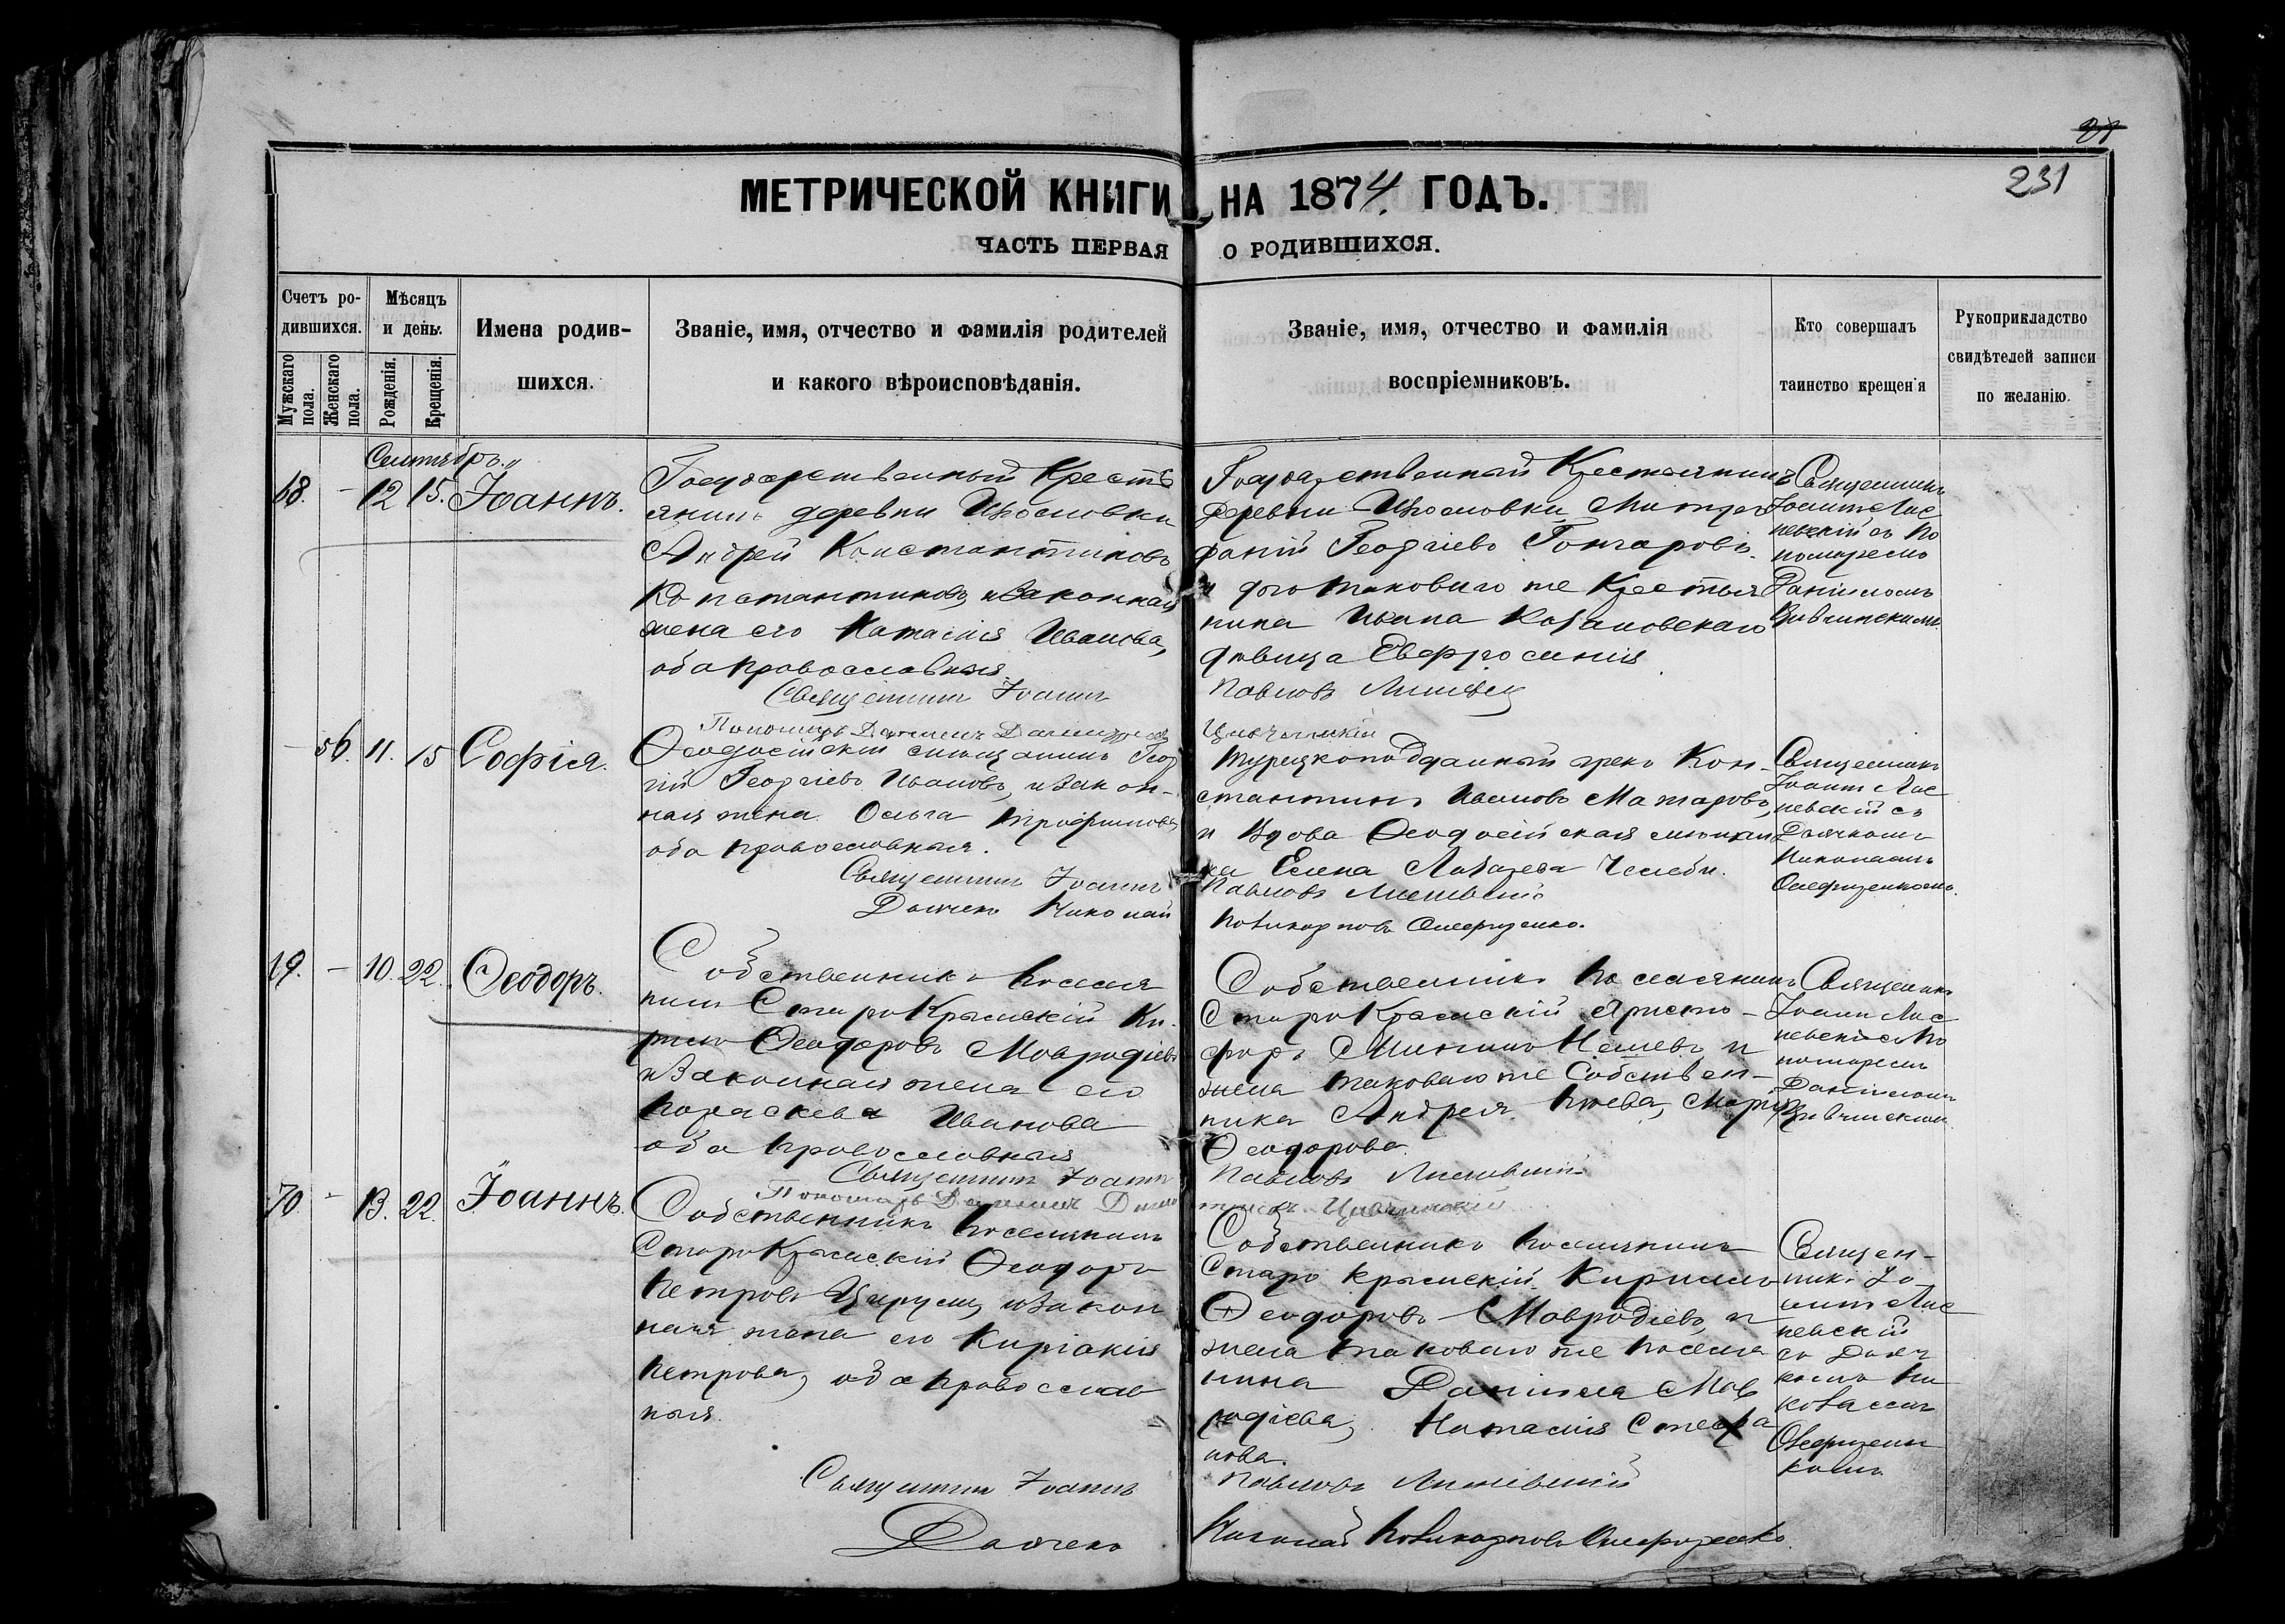 231
МЕТРИЧЕСКОЙ КНИГИ НА 1874 ГОДЪ.
ЧАСТЬ ПЕРВАЯ О РОДИВШИХСЯ.
Счетъ ро-
дившихся.
Мужскаго пола.
Женскаго пола.
Мѣсяцъ
и день.
Рожденія.
Крещенія.
Имена родив-
шихся.
Званіе, имя, отчество и фамилія родителей
и какого вѣроисповѣданія.
Званіе, имя, отчество и фамилія
воспріемниковъ.
Кто совершалъ
таинство крещенія
Рукоприкладство
свидѣтелей записи
по желанію.
Сентябрь
68. - 12 15. Іоаннъ.
Государственный Кресть
янинъ деревни
Андрей Константиновъ
Константиновъ, и Законная
жена его Наталія Иванова,
оба православныя
Священникъ Іоаннъ
Пономарь Даніилъ
Государственный Крестьянинъ
деревни Митро
фаній Георгіевъ Гончаровъ
и того таковаго же Крестья
нина Ивана
дѣвица Евфросинія
Павловъ
Священникъ
Іоаннъ Лис
невскій съ По
номаремъ
Даніиломъ
- 56. 11. 15 Софія.
Ѳеодосійскій мѣщанинъ Геор
гій Георгіевъ Ивановъ, и Закон-
ная жена Ольга Трофимова
оба православныя.
Священникъ Іоаннъ
Дьячекъ Николай
Турецкоподданный грекъ Кон-
стантинъ Ивановъ
и Вдова Ѳеодосійская мѣщан
ка Елена Лазарева Челеби.
Павловъ Лисневскій
Поликарповъ
Священникъ
Іоаннъ Лис
невскій съ
Дьячкомъ
Николаемъ
69. - 10. 22. Ѳеодоръ.
Собственникъ Поселя
нинъ СтароКрымскій Ки-
рилъ Ѳеодоровъ Мавродіевъ
и Законная жена его
Параскева Иванова
оба Православныя
Священникъ Іоаннъ
Пономарь Даніилъ
Собственникъ Поселянинъ
СтароКрымскій Христо-
форъ и
жена таковаго же Собствен-
ника Андрея Марія
Ѳеодорова.
Павловъ Лисневскій
Священникъ
Іоаннъ Лис
невскій съ По
номаремъ
Даніиломъ
70 - 13. 22. Іоаннъ.
Собственникъ Поселянинъ
СтароКрымскій Ѳеодоръ
Петровъ и Закон
ная жена его Киріакія
Петрова, оба Православ
ныя.
Священникъ Іоаннъ
Дьячекъ
Собственникъ Поселянинъ
Старо Крымскій Кириллъ
Ѳеодоровъ Мавродіевъ, и
жена таковаго же Поселя
нина Даніила Мав
родіева, Наталія Стефа
нова.
Павловъ Лисневскій
Николай Поликарповъ
Священ-
никъ Іо
аннъ Лис
невскій
съ Дьяч
комъ Ни
колаемъ